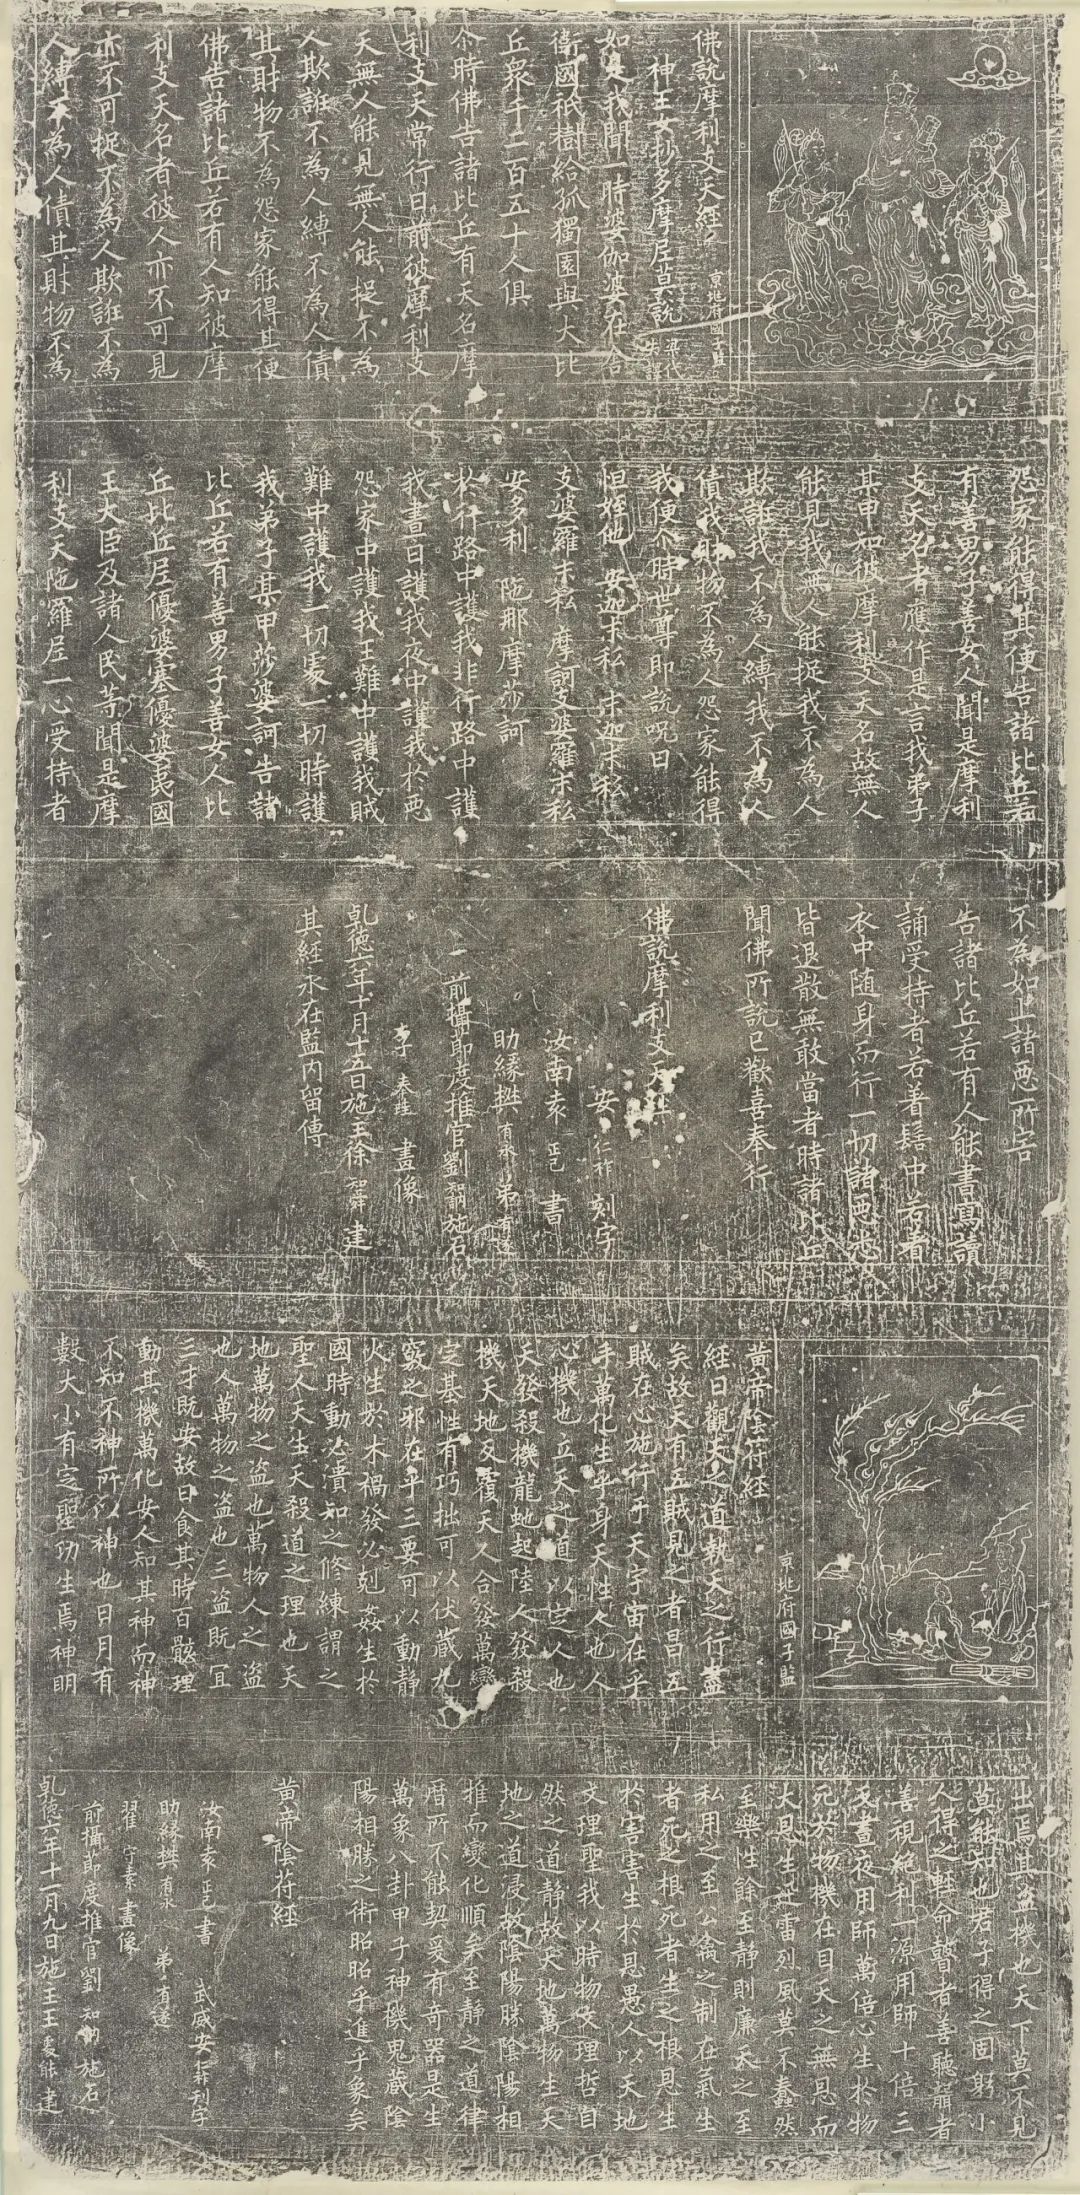 佛說摩利支天經
京兆府國子監
神王女抄多摩尼莫說 梁代失譯
如是我聞一時婆伽婆在舍
衛國祇樹給孤獨園與大比
丘衆千二百五十人俱
尒時佛告諸比丘有天名摩
利支天常行日前彼摩利支
天無人能見無人能捉不為
人欺誑不為人縛不為人債
其財物不為怨家能得其便
佛告諸比丘若有人知彼摩
利支天名者彼人亦不可見
亦不可捉不為人欺誑不為
人縛不為人債其財物不為
怨家能得其便告諸比丘若
有善男子善女人聞是摩利
支天名者應作是言我弟子
其甲知彼摩利支天名故無人
能見我無人能捉我不為人
欺誑我不為人縛我不為人
債我財物不為人怨家能得
我便尒時世尊即說呪曰
怛姪他 安迦末私 末迦末私
支婆羅末私 摩訶支婆羅末私
安多利 陁那摩莎訶
於行路中護我非行路中護
我晝日護我夜中護我於惡
怨家中護我王難中護我賊
難中護我一切處一切時護
我弟子其甲莎婆訶告諸
比丘若有善男子善女人比
丘比丘尼優婆塞優婆夷國
王大臣及諸人民等聞是摩
利支天陁羅尼一心受持者
不為如上諸惡所害
告諸比丘若有人能書寫讀
誦受持者若著髻中若著
衣中随身而行一切諸惡悉
皆退散無敢當者時諸比丘
聞佛所說已歡喜奉行
佛說摩利支天經
安仁祚 刻字
汝南袁正己 書
助緣樊有永 弟有遂
前攝節度推官劉知訥施石
李奉珪 畫像
乹德六年十月十五日施主徐知舜建
其經永在監内留傳
京兆府國子監
黃帝陰符經
經曰觀天之道執天之行盡
矣故天有五賊見之者昌五
賊在心施行于天宇宙在乎
手萬化生乎身天性人也人
心機也立天之道以定人也
天發殺機龍虵起陸人發殺
機天地反覆天人合發萬變
定基性有巧拙可以伏藏九
竅之邪在乎三要可以動静
火生於木禍發必剋姦生於
國時動必潰知之修練謂之
聖人天生天殺道之理也天
地萬物之盜也萬物人之盜
也人萬物之盜也三盜既冝
三才既安故曰食其時百骸理
動其機萬化安人知其神而神
不知不神所以神也日月有
數大小有定聖功生焉神明
出焉其盜機也天下莫不見
莫能知也君子得之固躬小
人得之輕命瞽者善聽聾者
善視絶利一源用師十倍三
反晝夜用師萬倍心生於物
死於物機在目天之無恩而
大恩生迅雷烈風莫不蠢然
至樂性餘至静則廉天之至
私用之至公禽之制在氣生
者死之根死者生之根恩生
於害害生於恩愚人以天地
文理聖我以時物文理哲自
然之道静故天地萬物生天
地之道浸故陰陽勝陰陽相
推而變化順矣至静之道律
曆所不能契爰有奇器是生
萬象八卦甲子神機鬼藏陰
陽相勝之術昭昭乎進乎象矣
黃帝陰符經
汝南袁正己書 武威安仁祚刊字
助緣樊有永 弟有遂
翟守素畫像
前攝節度推官劉知訥施石
乹德六年十一月九日施主王 能建